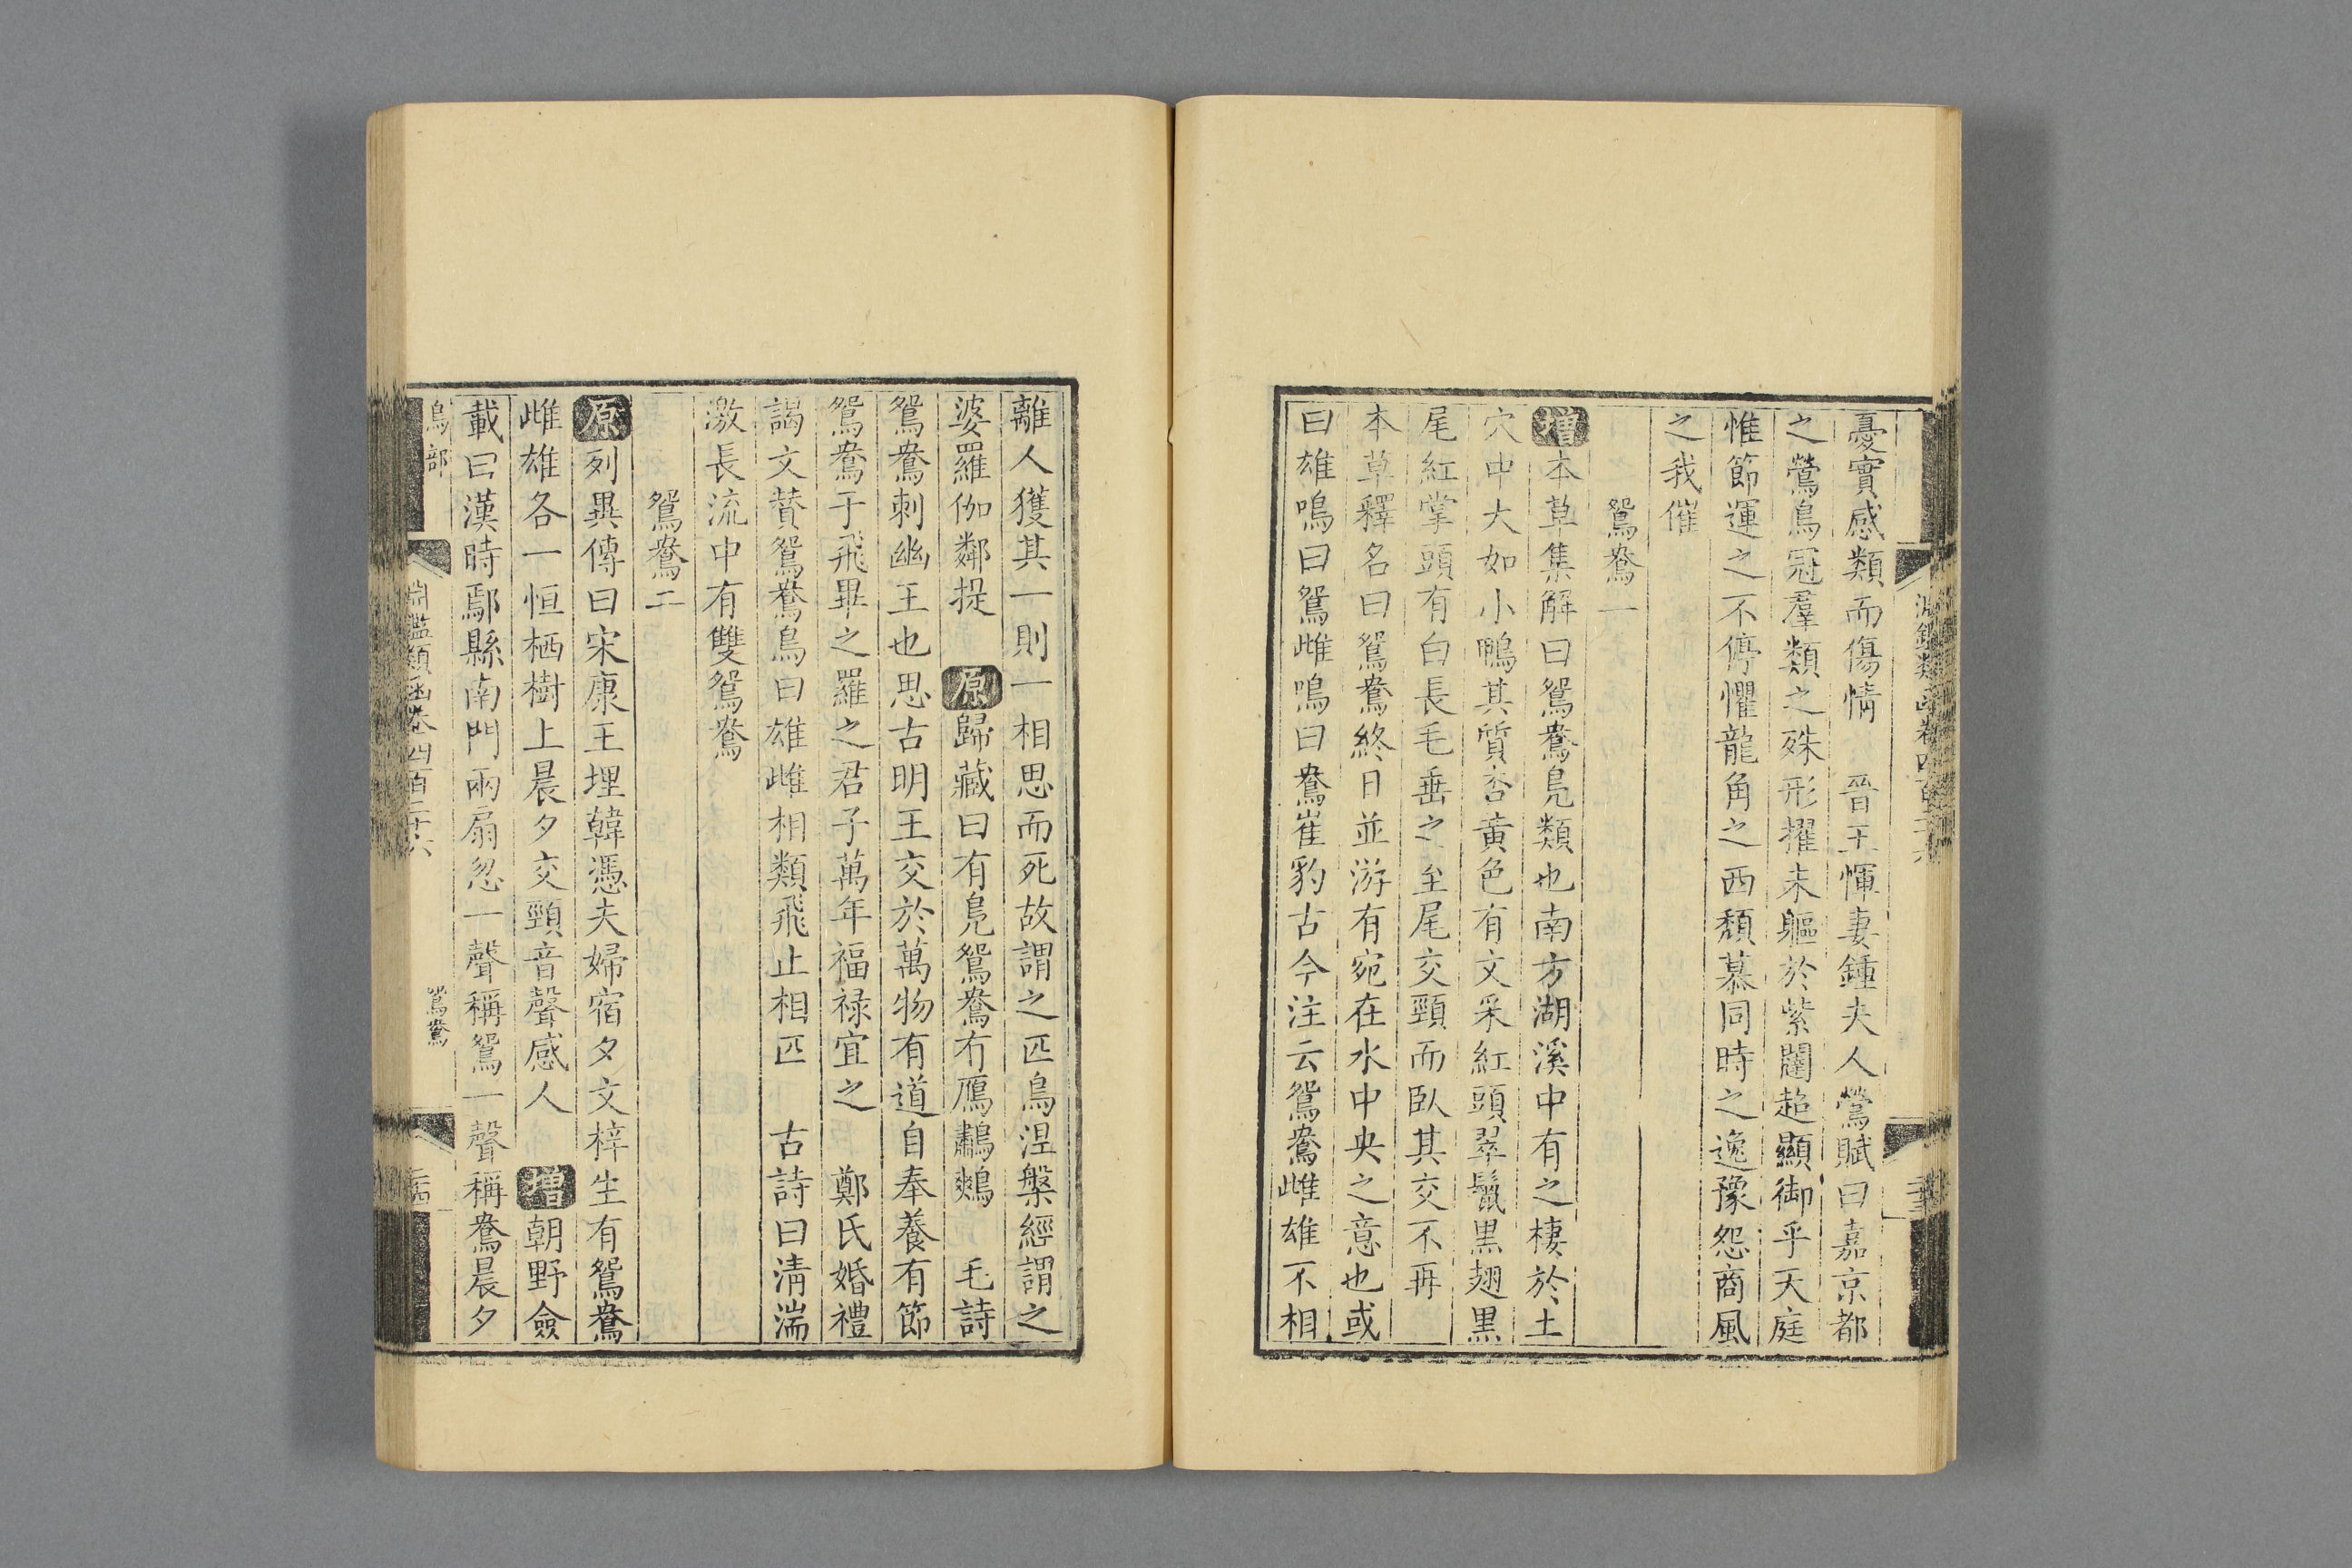 憂實感類而傷情　晉王惲妻鍾夫人鶯賦曰嘉京都
之鶯鳥冠羣類之殊形擢末軀於紫闥超顯御乎天庭
惟節運之不停懼龍角之西頽慕同時之逸豫怨商風
之我催
鴛鴦一
增本草集解曰鴛鴦鳧類也南方湖溪中有之棲於土
穴中大如小鴨其質杏黄色有文采紅頭翠鬣黒翅黒
尾紅掌頭有白長毛垂之至尾交頸而臥其交不再
本草釋名曰鴛鴦終日並游有宛在水中央之意也或
曰雄鳴曰鴛雌鳴曰鴦崔豹古今注云鴛鴦雌雄不相
淵鑑類函卷四百二十六
離人獲其一則一相思而死故謂之匹鳥涅槃經謂之
婆羅伽鄰提　原歸藏曰有鳧鴛鴦有鴈鷫鷞　毛詩
鴛鴦刺幽王也思古明王交於萬物有道自奉養有節
鴛鴦于飛畢之羅之君子萬年福祿宜之　鄭氏婚禮
謁文賛鴛鴦鳥曰雄雌相類飛止相匹　古詩曰清湍
激長流中有雙鴛鴦
鴛鴦二
原列異傳曰宋康王埋韓憑夫婦宿夕文梓生有鴛鴦
雌雄各一恒栖樹上晨夕交頸音聲感人　增朝野僉
載曰漢時鄢縣南門兩扇忽一聲稱鴛一聲稱鴦晨夕
鳥部
淵鑑類函卷四百二十六
鴛鴦